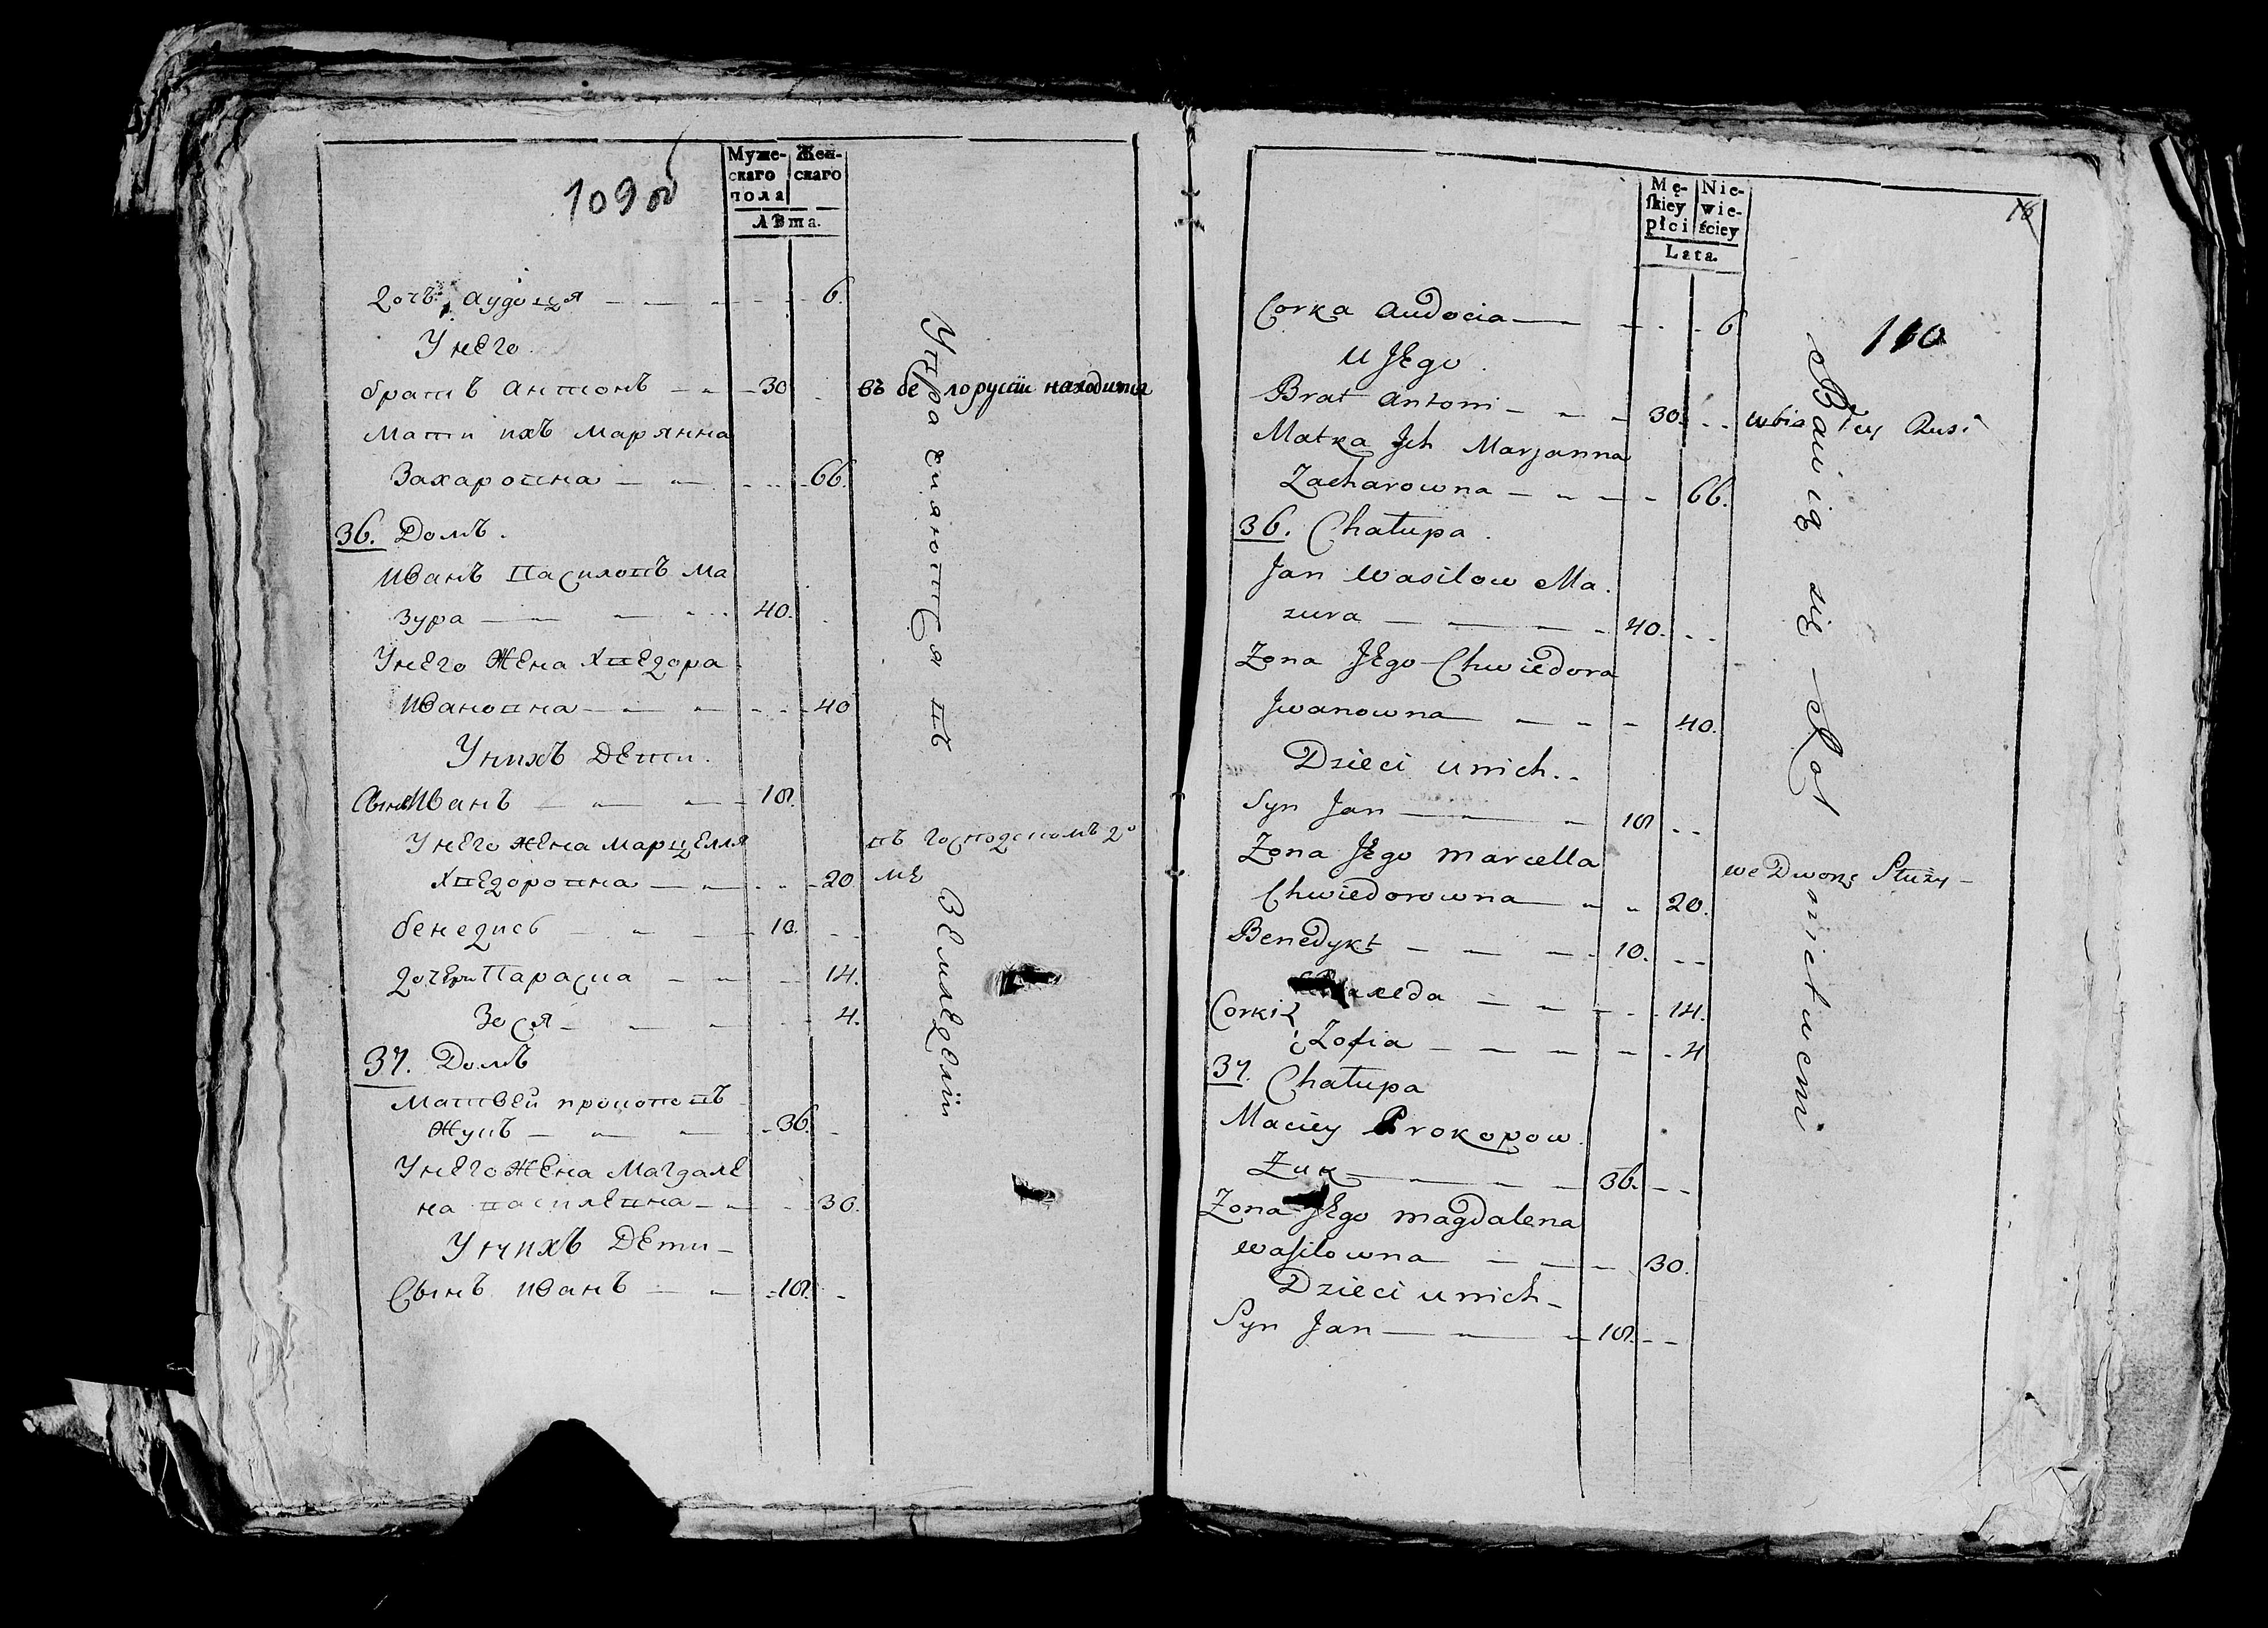 109 об
Муже-
скаго
пола
Жен-
скаго
Лѣта.
дочь аудоцея — 6.
У него
братъ антонъ — 30
въ белоруссіи находится
Мати ихъ Марянна
Захаровна — 66.
36. Домъ.
Иванъ Василовъ Ма
зура — 40.
У него жена Хведора
Ивановна — 40
У нихъ Дети.
Сынъ Иванъ — 18.
У него жена Марцелля
Хведоровна — 20
въ господскомъ до
мѣ
бенедикъ — 10.
дочери Параска — 14.
Зося — 4.
37. Домъ
Матвей прокоповъ
Жукъ — 36.
У него жена Магдале
на василевна — 30.
У нихъ Дети —
Сынъ иванъ — 18.
Упражняются въ Земледелiи
16
110
Mę-
skiey
płci
Nie-
wie-
ściey
Lata.
Corka Audocia — 6
U Jego.
Brat Antoni — 30.
w bia łey Rusi
Matka Jch Marjanna
Zacharowna — 66.
36. Chałupa.
Jan Wasilow Ma.
zura — 40.
Zona Jego Chwiedora
Jwanowna — 40.
Dzieci u nich.
Syn Jan — 18
Zona Jego Marcella
Chwiedorowna — 20.
we Dworze Służy —
Benedykt — 10.
Corki
14.
i Zofia — 4
37. Chałupa
Maciey Prokopow.
Żuk — 36.
Zona Jego Magdalena
Wasilowna — 30.
Dzieci u nich —
Syn Jan — 18.
Bawią się Rolnictwem